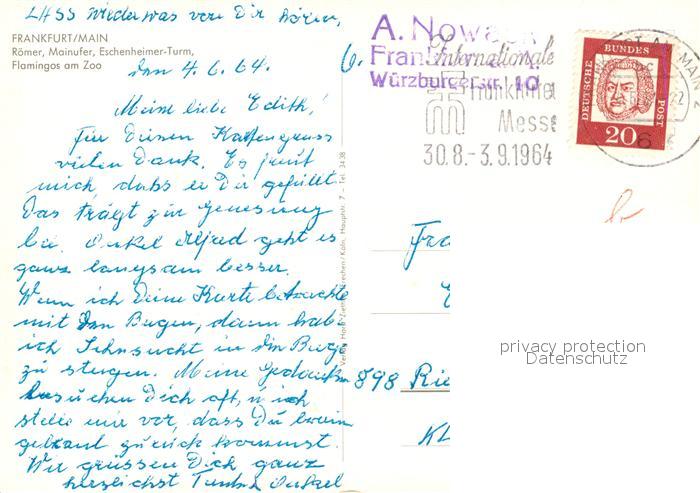 Lass wieder was von Dir hören,
FRANKFURT/MAIN
Römer, Mainufer, Eschenheimer-Turm,
Flamingos am Zoo
den 4.6.64.
Meine liebe Edith!
Für Deinen Kartengruss
vielen Dank. Es freut
mich, dass es Dir gefällt.
Das trägt zur Genesung
bei. Onkel Alfred geht es
ganz langsam besser.
Wenn ich Deine Karte betrachte
mit den Bergen, dann hab
ich Sehnsucht in die Berge
zu steigen. Meine Gedanken
besuchen Dich oft, u ich
stelle mir vor, dass Du braun
gebrannt zurück kommst.
Wir grüssen Dich ganz
herzlichst Tante Onkel
Verlag Horst Ziethen, Frechen/Köln, Hauptstr. 7 - Tel. 3438
6.
A. Nowack
Frankfurt a. M.
Würzburgerstr. 10
Internationale
Frankfurter
Messe
30.8.-3.9.1964
DEUTSCHE BUNDES POST
20
b
Fra
898 Rie
Kl
privacy protection
Datenschutz